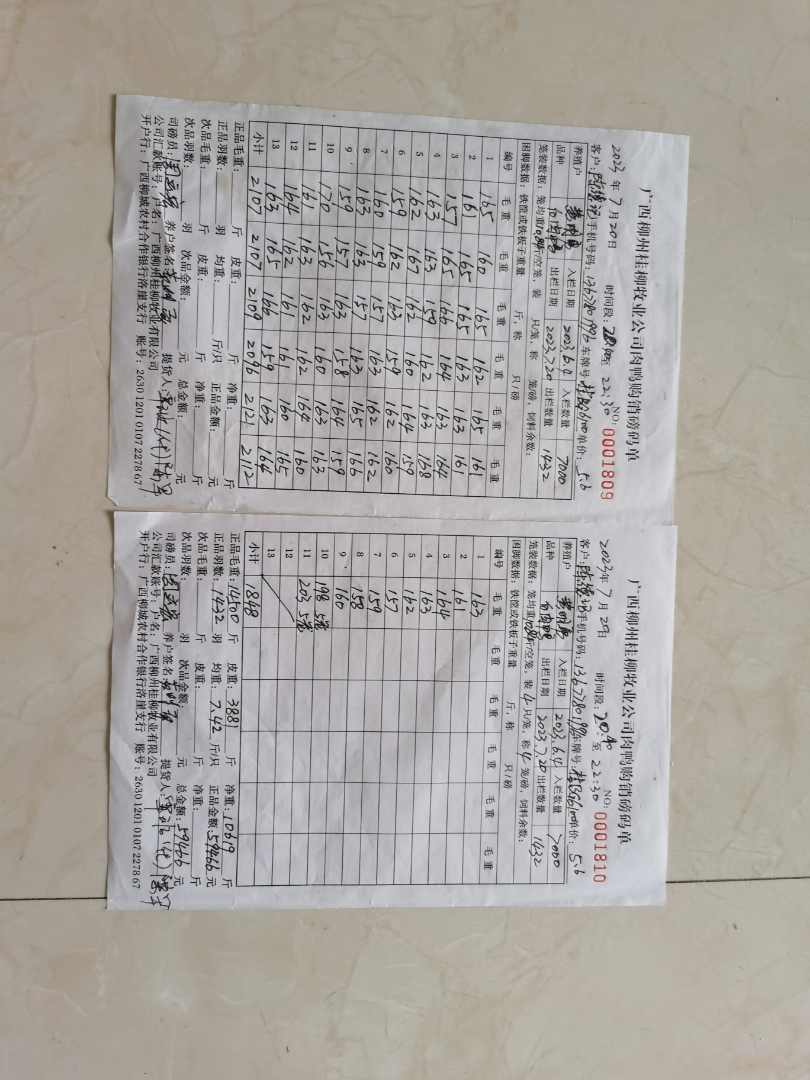 广西柳州桂柳牧业公司肉鸭购销磅码单
NO: 0001809
2023年7月20日 时间段: 20:40至22:30
客户: 手机号码: 13677801996 车牌号: 单价: 5.6
养殖户 入栏日期 2023.6.4 入栏数量 7000
品种 白肉鸭 出栏日期 2023.7.20 出栏数量 1432
笼装数据: 笼均重 斤/空笼, 装 只/笼, 称 笼/磅, 饲料余数:
困脚数据: 铁筐或铁板子重量 斤, 称 只/磅
编号 毛重 毛重 毛重 毛重 毛重 毛重
1 165 160 165 162 165 161
2 161 165 165 163 163 161
3 157 165 166 164 163 164
4 163 163 159 162 163 168
5 162 167 162 160 164 159
6 159 162 163 159 162 160
7 160 159 157 163 162 162
8 163 163 157 163 165 166
9 159 157 163 158 164 159
10 170 156 163 160 163 163
11 161 163 162 162 164 160
12 164 162 161 161 160 165
13 163 165 166 159 163 164
小计 2107 2107 2109 2096 2121 2112
正品毛重: 斤 皮重: 斤 净重: 斤
正品羽数: 羽 均重: 斤/只 正品金额: 元
次品毛重: 斤 皮重: 斤 净重: 斤
次品羽数: 羽 次品金额: 元 总金额: 元
司磅员: 养户签名: 提货人:
公司汇款账号: 户名: 广西柳州桂柳牧业有限公司
开户行: 广西柳城农村合作银行洛崖支行 账号: 2630 1201 0107 2278 67
广西柳州桂柳牧业公司肉鸭购销磅码单
NO: 0001810
2023年7月20日 时间段: 20:40至22:30
客户: 手机号码: 13677801996 车牌号: 单价: 5.6
养殖户 入栏日期 2023.6.4 入栏数量 7000
品种 白肉鸭 出栏日期 2023.7.20 出栏数量 1432
笼装数据: 笼均重 斤/空笼, 装4只/笼, 称4笼/磅, 饲料余数:
困脚数据: 铁筐或铁板子重量 斤, 称 只/磅
编号 毛重 毛重 毛重 毛重 毛重 毛重
1 163
2 161
3 164
4 163
5 162
6 157
7 159
8 158
9 160
10 198 5笼
11 203 5笼
12
13
小计 1848
正品毛重: 14500 斤 皮重: 3881 斤 净重: 10619 斤
正品羽数: 1432 羽 均重: 7.42 斤/只 正品金额: 59466 元
次品毛重: 斤 皮重: 斤 净重: 斤
次品羽数: 羽 次品金额: 元 总金额: 59466 元
司磅员: 养户签名: 提货人:
公司汇款账号: 户名: 广西柳州桂柳牧业有限公司
开户行: 广西柳城农村合作银行洛崖支行 账号: 2630 1201 0107 2278 67